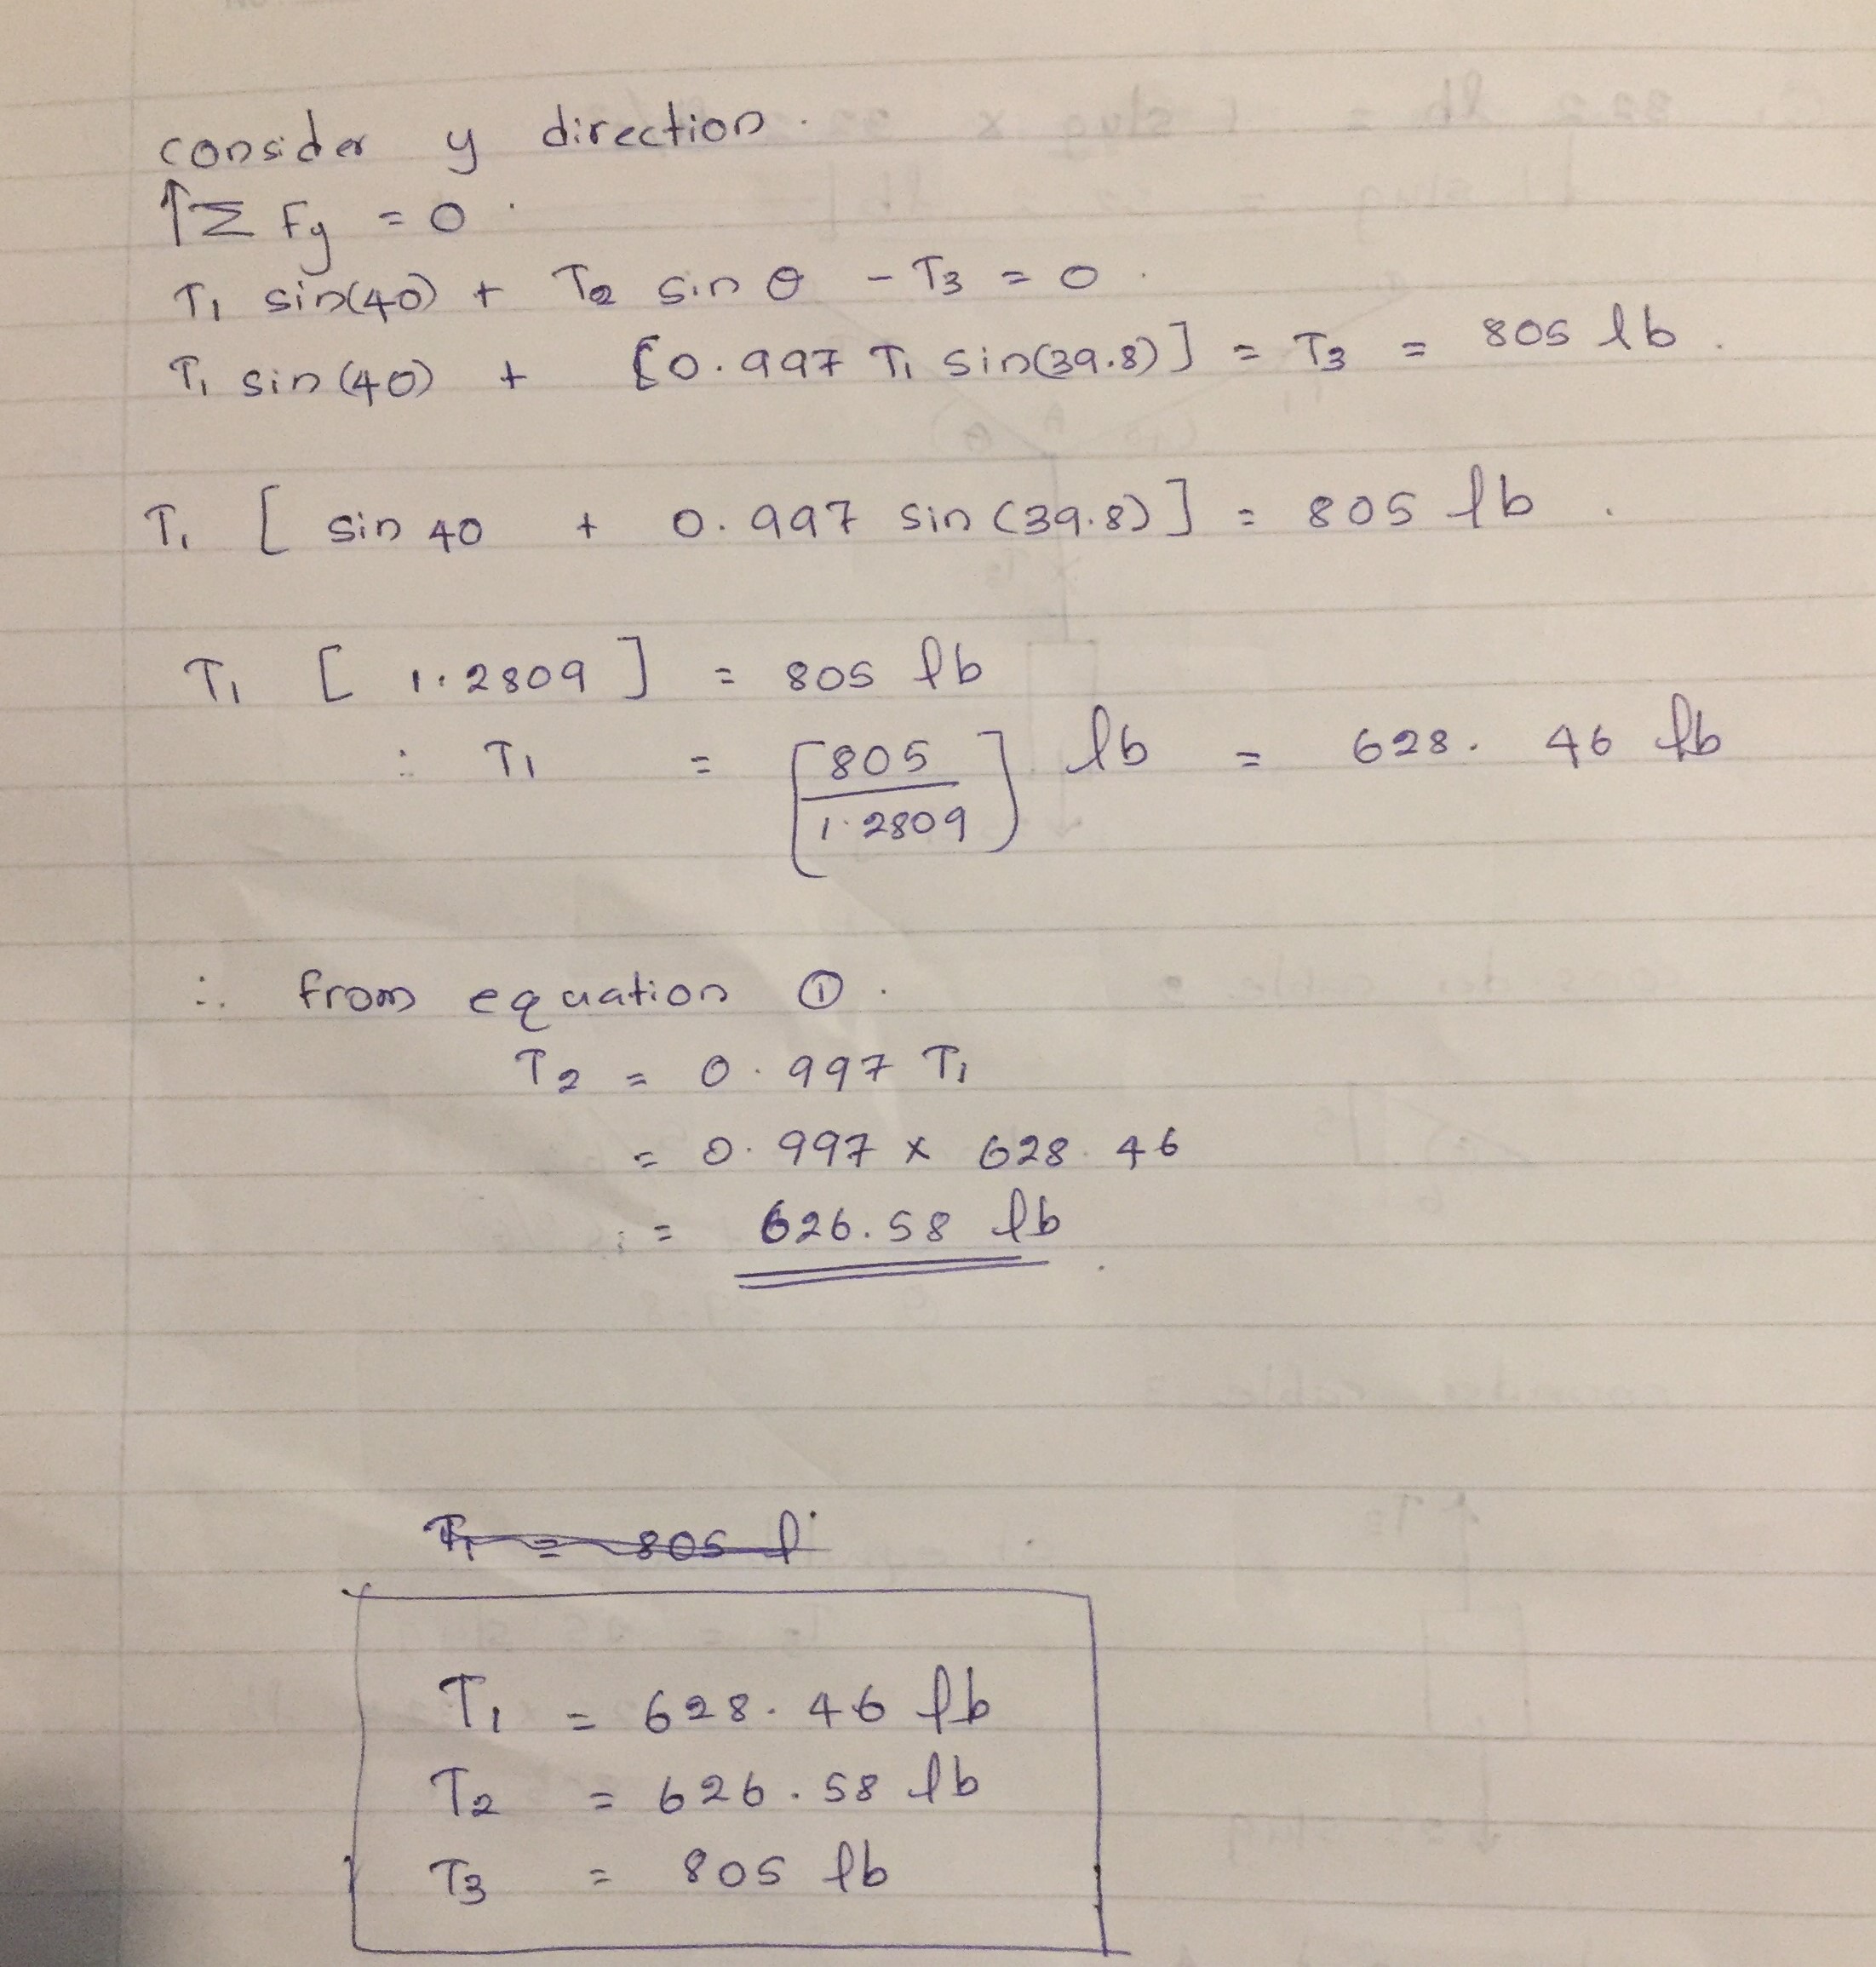 consider y direction.
↑Σ Fy = 0.
T₁ sin(40) + T₂ sin θ - T₃ = 0.
T₁ sin(40) + [0.997 T₁ sin(39.8)] = T₃ = 805 lb.
T₁ [ sin 40 + 0.997 sin(39.8)] = 805 lb.
T₁ [ 1.2809 ] = 805 lb
: T₁ = [805/1.2809] lb = 628.46 lb
∴ from equation ①.
T₂ = 0.997 T₁
= 0.997 x 628.46
= 626.58 lb
T₁ = 805 l
T₁ = 628.46 lb
T₂ = 626.58 lb
T₃ = 805 lb